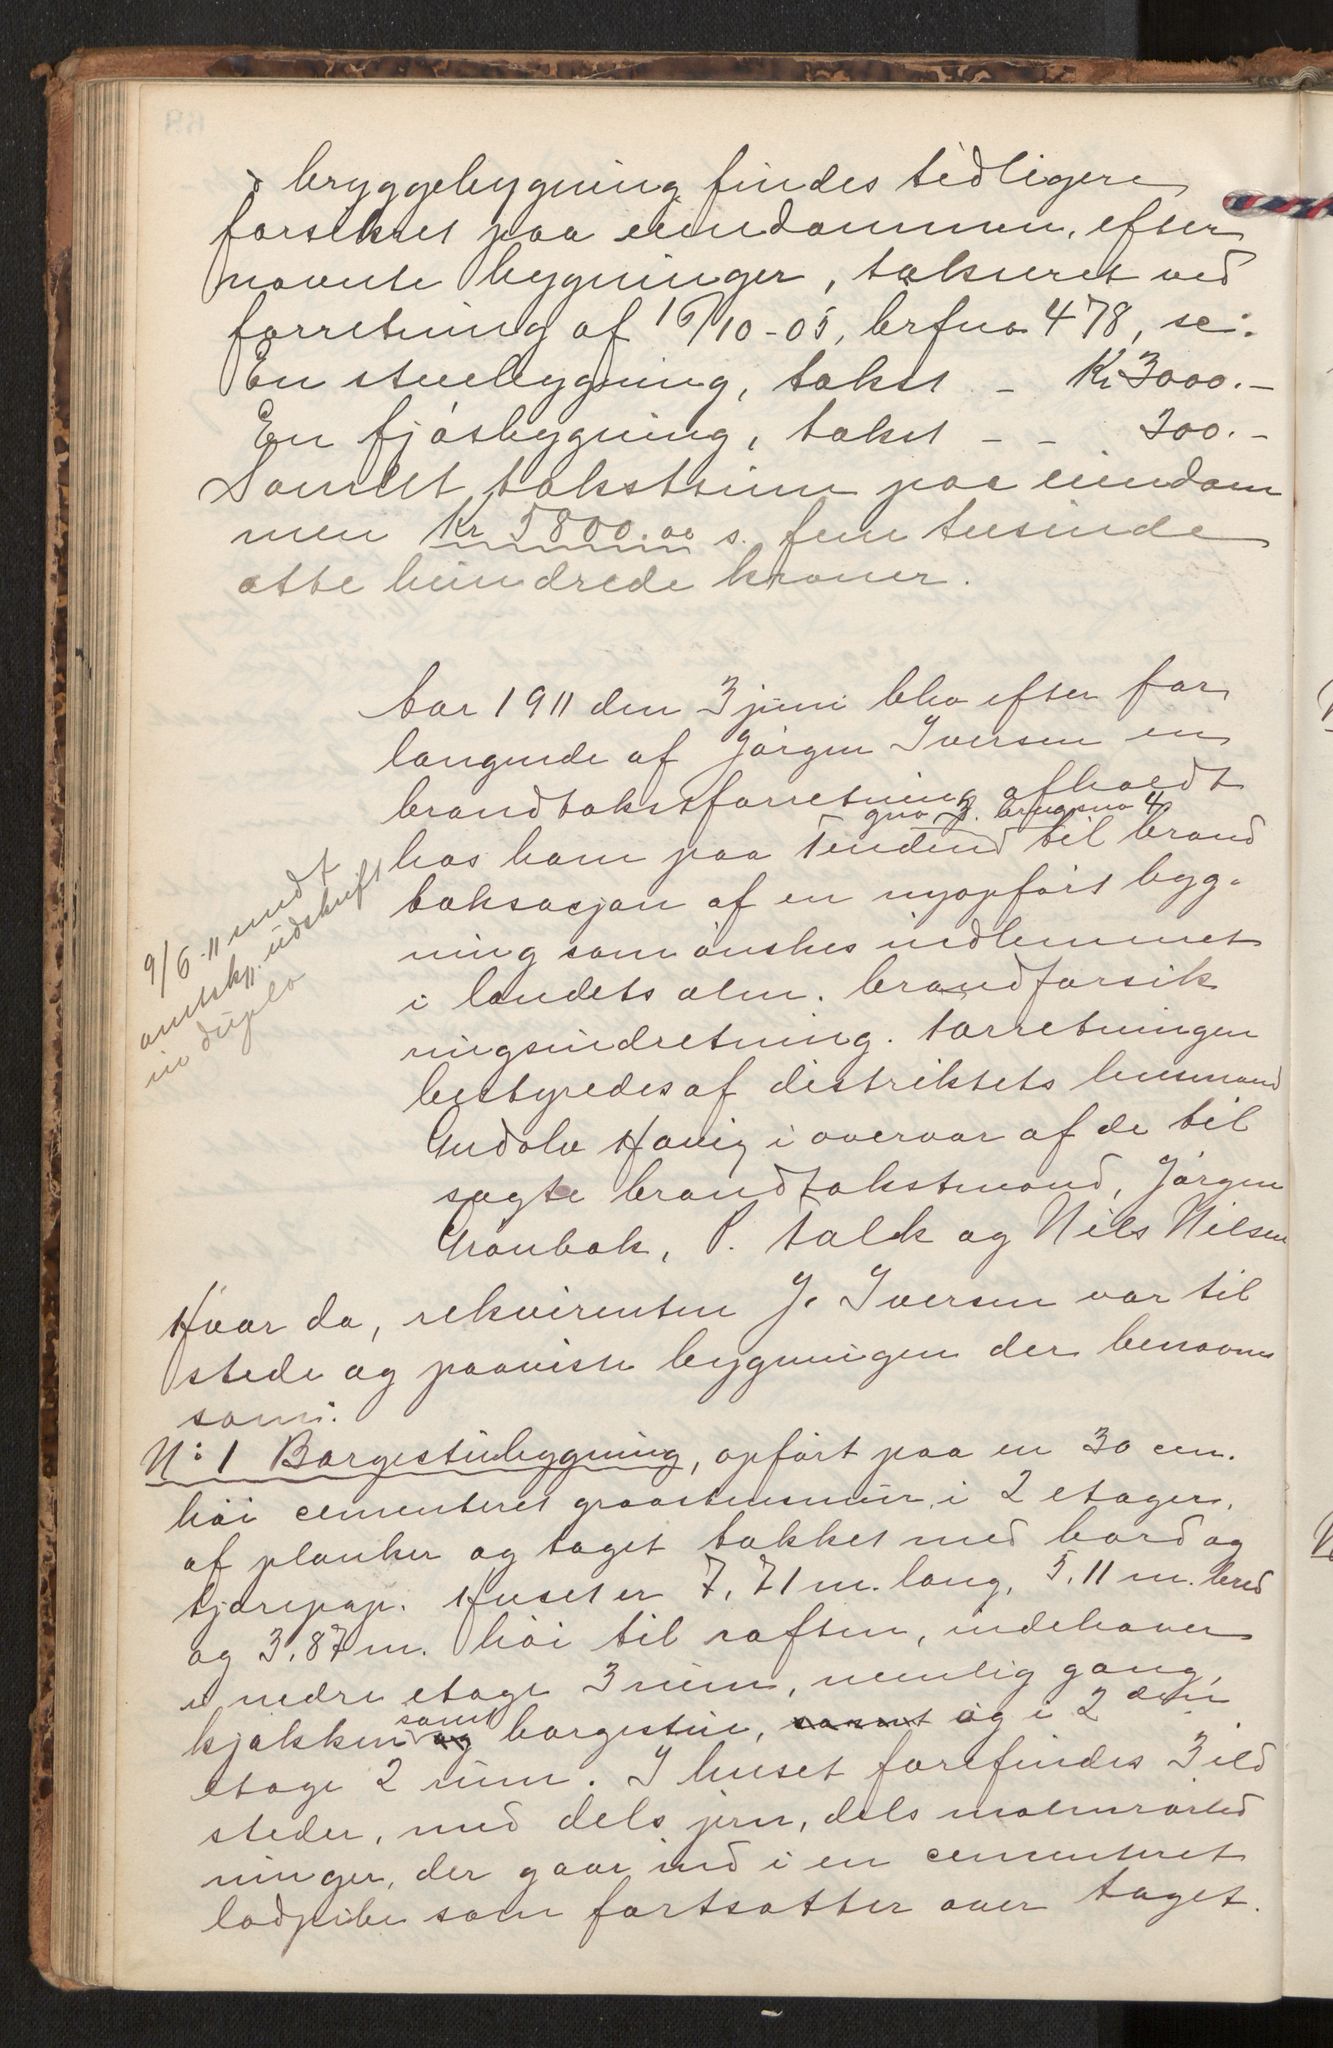 bryggebygning findes tidligere
forsikret paa eiendommen, efter
nævnte bygninger, takseret ved
forretning af 16/10-05, brfno 478, se:
En stuebygning, takst – Kr 3000.–
En fjøsbygning, takst – – 300.–
Samlet takstsum paa eiendom
men Kr 5800.00 s. fem tusinde
otte hundrede kroner.
Aar 1911 den 3 juni blev efter for
langende af Jørgen Iversen en
brandtakstforretning afholdt
gno 3. brugsno 4
hos ham paa Tendend til brand
taksasjon af en nyopført byg-
ning som ønskes indlemmet
i landets alm. brandforsik
ringsindretning. Forretningen
bestyredes af distriktets lensmand
Gudolv Havig i overvær af de til
sagte brandtakstmænd, Jørgen
Grønbæk, P. Falck og Nils Nilsen
9/6-11 sendt
amtsk. udskrift
in duplo
Hvor da, rekvirenten J. Iversen var til
stede og paaviste bygningen der benævnes
som:
N: 1 Borgestuebygning, opført paa en 30 cm.
høi cementeret graastensmur, i 2 etager,
af planker og taget tækket med bord og
tjærepap. Huset er 7,71 m. lang, 5,11 m. bred
og 3,87 m. høi til raften, indehaver
i nedre etage 3 rum, nemlig gang,
kjøkken og samt borgestue, samt og i 2 den
etage 2 rum. I huset forefindes 3 ild
steder, med dels jern, dels murrørled
ninger, der gaar ind i en cementeret
lodpibe som fortsætter over taget.